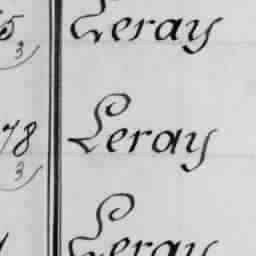 5 Leray
3
78 Leray
3
Leray